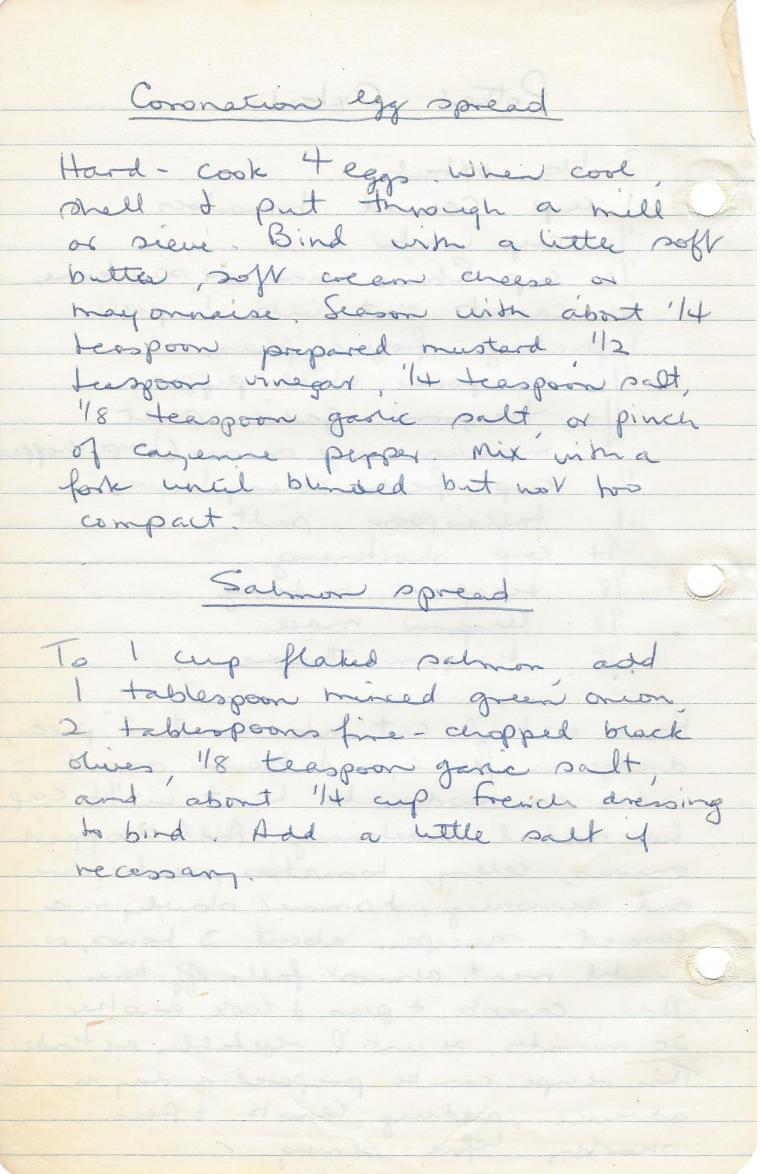 Coronation egg spread
Hard - cook 4 eggs. When cool,
shell & put through a mill
or sieve. Bind with a little soft
butter, soft cream cheese or
mayonnaise. Season with about 1/4
teaspoon prepared mustard, 1/2
teaspoon vinegar, 1/4 teaspoon salt,
1/8 teaspoon garlic salt, or pinch
of cayenne pepper. Mix with a
fork until blended but not too
compact.
Salmon spread
To 1 cup flaked salmon, add
1 tablespoon minced green onion,
2 tablespoons fine - chopped black
olives, 1/8 teaspoon garlic salt,
and about 1/4 cup French dressing
to bind. Add a little salt if
necessary.